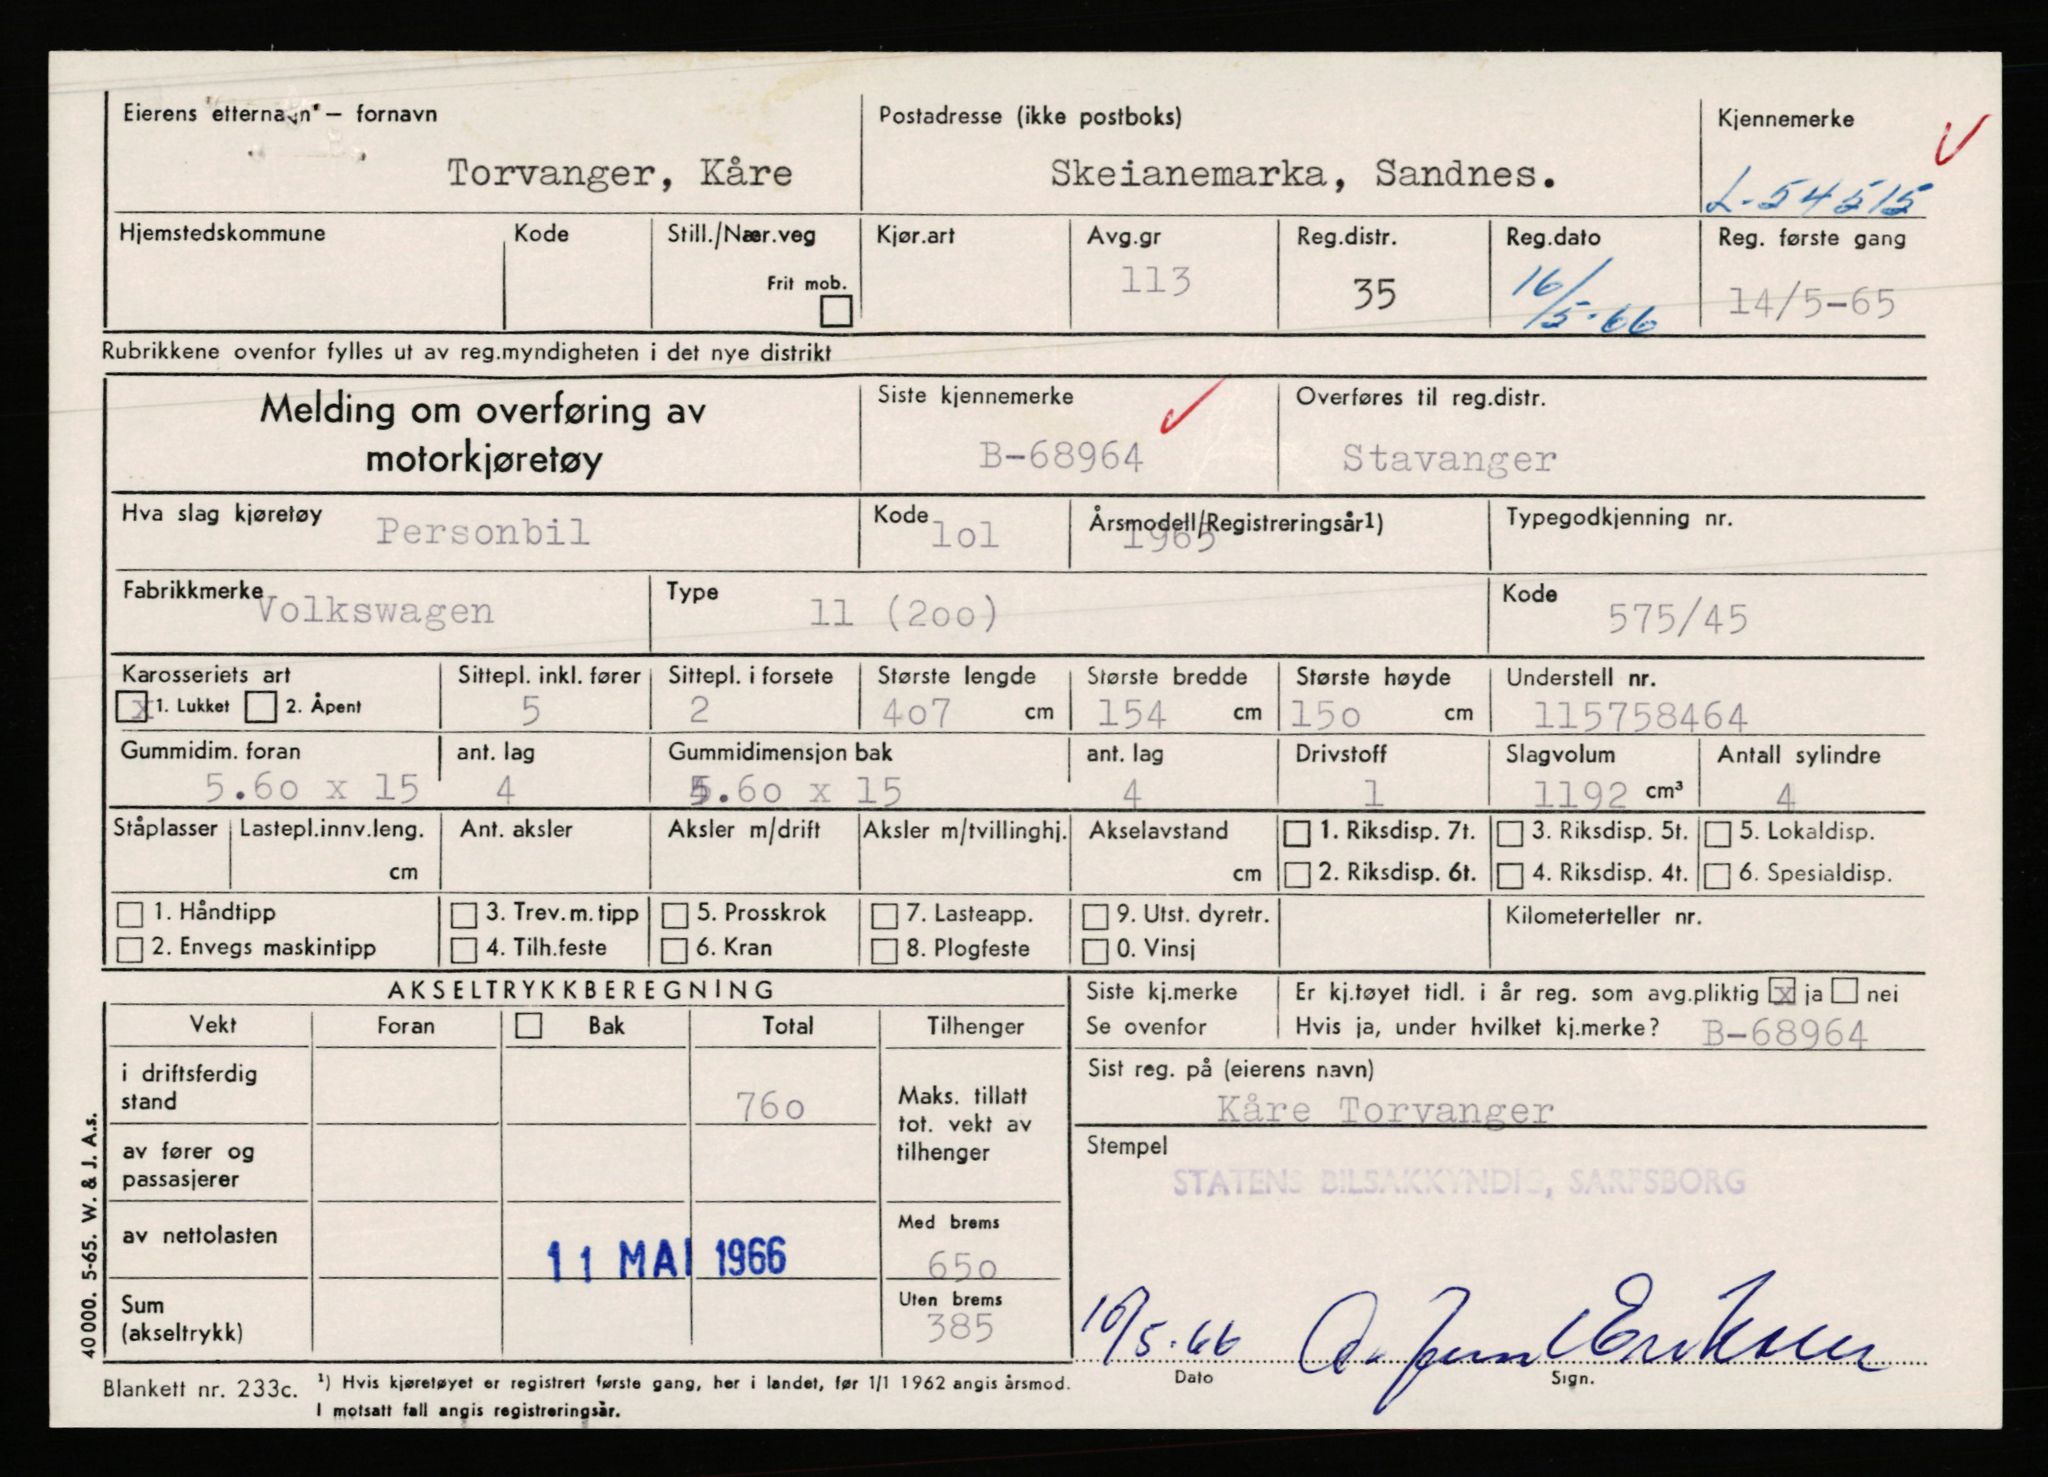 Eierens etternavn — fornavn
Torvanger, Kåre
Postadresse (ikke postboks)
Skeianemarka, Sandnes.
Kjennemerke
L-54515
Hjemstedskommune
Kode
Still./Nær.veg
Frit mob.
Kjør.art
Avg.gr
113
Reg.distr.
35
Reg.dato
16/5-66
Reg. første gang
14/5-65
Rubrikkene ovenfor fylles ut av reg.myndigheten i det nye distrikt
Melding om overføring av
motorkjøretøy
Siste kjennemerke
B-68964
Overføres til reg.distr.
Stavanger
Hva slag kjøretøy
Personbil
Kode
lol
Årsmodell/Registreringsår1)
1965
Typegodkjenning nr.
Fabrikkmerke
Volkswagen
Type
11 (2oo)
Kode
575/45
Karosseriets art
x 1. Lukket 2. Åpent
Sittepl. inkl. fører
5
Sittepl. i forsete
2
Største lengde
4o7 cm
Største bredde
154 cm
Største høyde
15o cm
Understell nr.
115758464
Gummidim. foran
5.6o x 15
ant. lag
4
Gummidimensjon bak
5.6o x 15
ant. lag
4
Drivstoff
1
Slagvolum
1192 cm³
Antall sylindre
4
Ståplasser
Lastepl.innv.leng.
cm
Ant. aksler
Aksler m/drift
Aksler m/tvillinghj.
Akselavstand
cm
1. Riksdisp. 7t.
2. Riksdisp. 6t.
3. Riksdisp. 5t.
4. Riksdisp. 4t.
5. Lokaldisp.
6. Spesialdisp.
1. Håndtipp
2. Envegs maskintipp
3. Trev.m.tipp
4. Tilh.feste
5. Prosskrok
6. Kran
7. Lasteapp.
8. Plogfeste
9. Utst. dyretr.
0. Vinsj
Kilometerteller nr.
AKSELTRYKKBEREGNING
Vekt Foran Bak Total Tilhenger
i driftsferdig
stand
76o
Maks. tillatt
tot. vekt av
tilhenger
av fører og
passasjerer
av nettolasten
11 MAI 1966
Med brems
65o
Sum
(akseltrykk)
Uten brems
385
Siste kj.merke
Se ovenfor
Er kj.tøyet tidl. i år reg. som avg.pliktig x ja nei
Hvis ja, under hvilket kj.merke? B-68964
Sist reg. på (eierens navn)
Kåre Torvanger
Stempel
STATENS BILSAKKYNDIG, SARPSBORG
10/5-66
Eriksen
Dato
Sign.
40 000. 5-65. W. & J. A.s.
Blankett nr. 233c.
1) Hvis kjøretøyet er registrert første gang, her i landet, før 1/1 1962 angis årsmod.
I motsatt fall angis registreringsår.